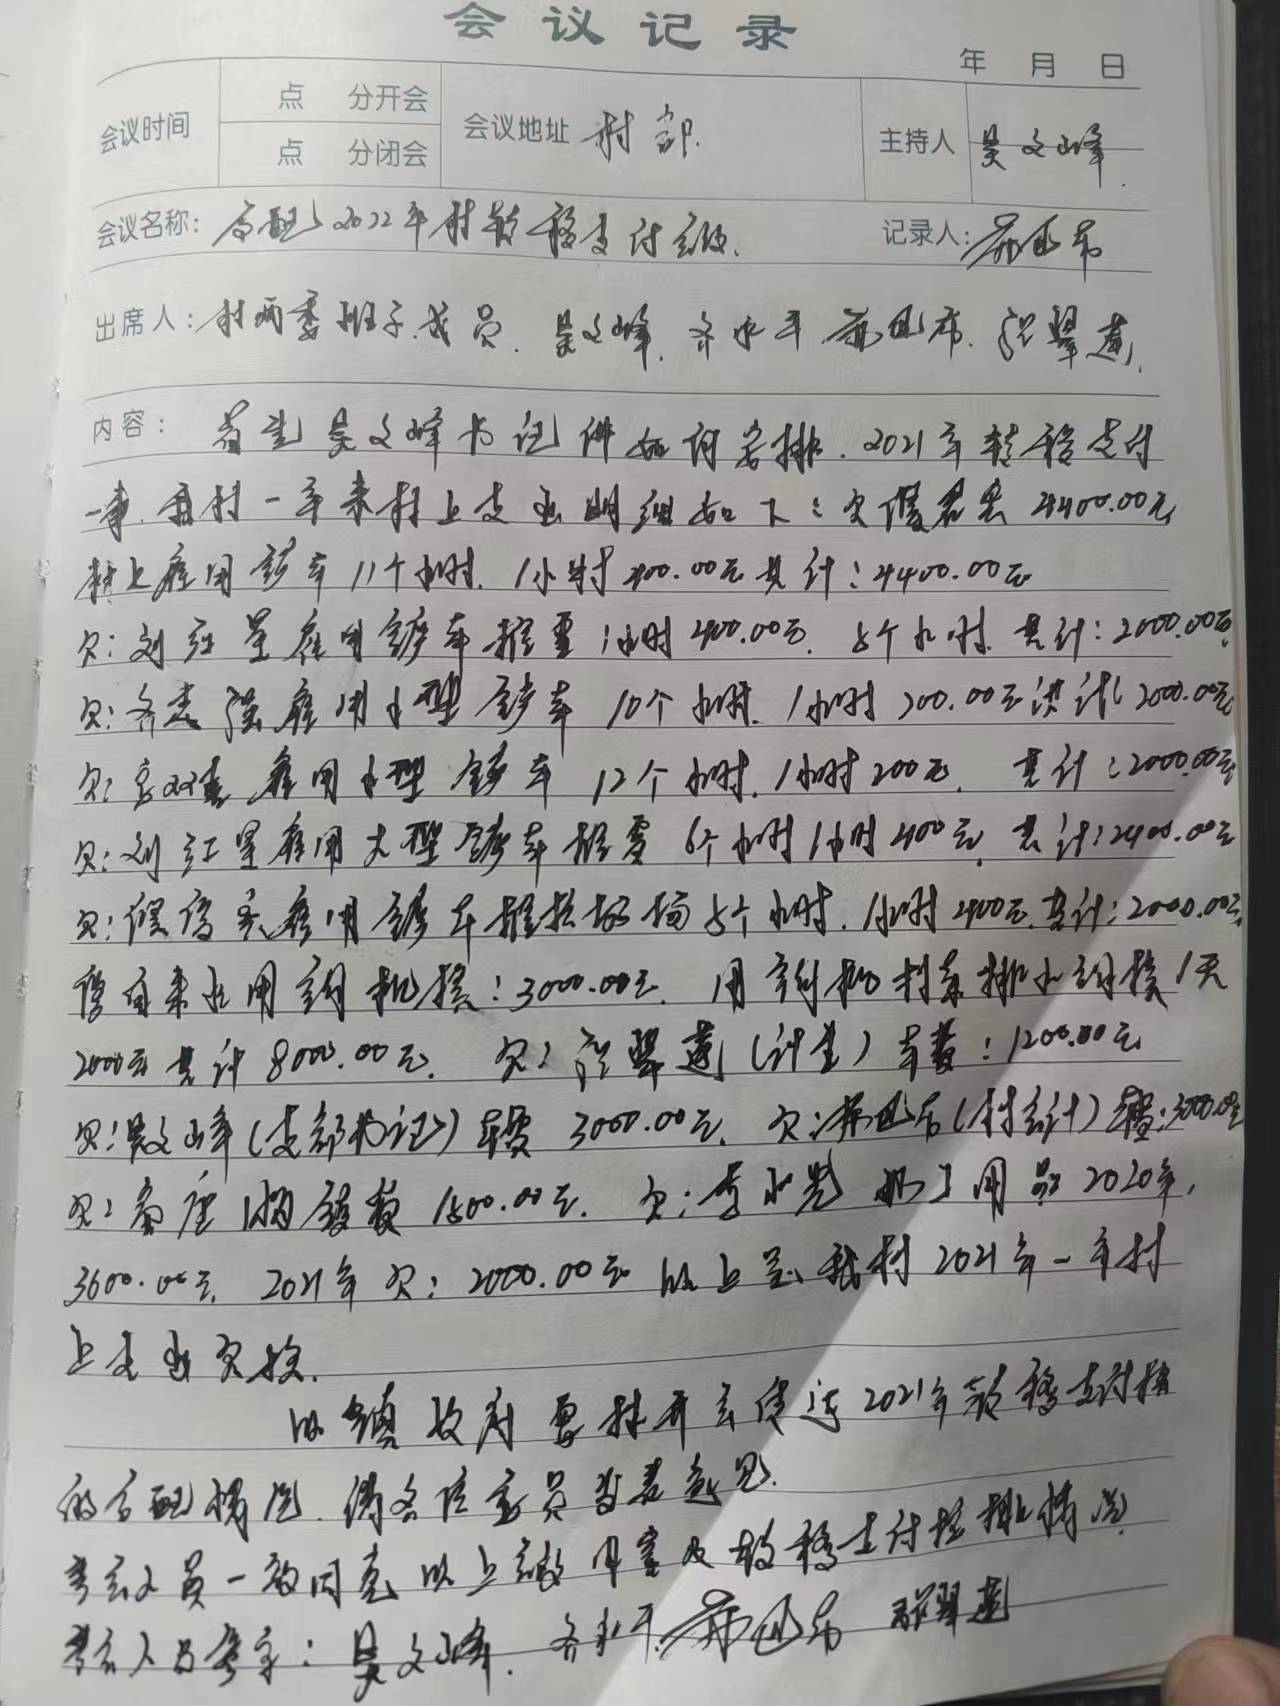 会议记录
年 月 日
会议时间 点 分开会 会议地址 村部. 主持人 吴文峰.
点 分闭会
会议名称: 2022年村转移支付会议. 记录人:
出席人: 村两委班子成员. 吴文峰. 齐永平 翠莲.
内容: 首先吴文峰书记 如何安排. 2021年转移支付
一事. 我村一年来村上支出明细如下: 欠 4400.00元
村上雇用铲车11个小时. 1小时400.00元共计: 4400.00元
欠: 刘红星雇用铲车推雪1小时400.00元. 5个小时. 共计: 2000.00元
欠: 齐志强雇用小型铲车 10个小时. 1小时200.00元共计: 2000.00元
欠: 雇用小型铲车 12个小时. 1小时200元. 共计: 2000.00元
欠: 刘红星雇用大型铲车推雪6个小时1小时400元. 共计: 2400.00元
欠: 雇用铲车推垃圾场5个小时. 1小时400元. 共计: 2000.00元
自来水用 机 : 3000.00元. 用 机 排水 1天
2000元共计8000.00元. 欠: 翠莲(计生)车费: 1200.00元
欠: 吴文峰(支部书记)车费 3000.00元. 欠: (村会计)车费: 3000.00元
欠: 1500.00元. 欠: 李 办公用品2020年,
3600.00元. 2021年欠: 2000.00元 以上是我村2021年一年村
上支出欠款.
镇政府要求开会传达2021年转移支付款
的分配情况. 请各位委员发表意见.
参会人员一致同意以上 内容及转移支付 情况.
参会人员签字: 吴文峰. 齐永平. 翠莲